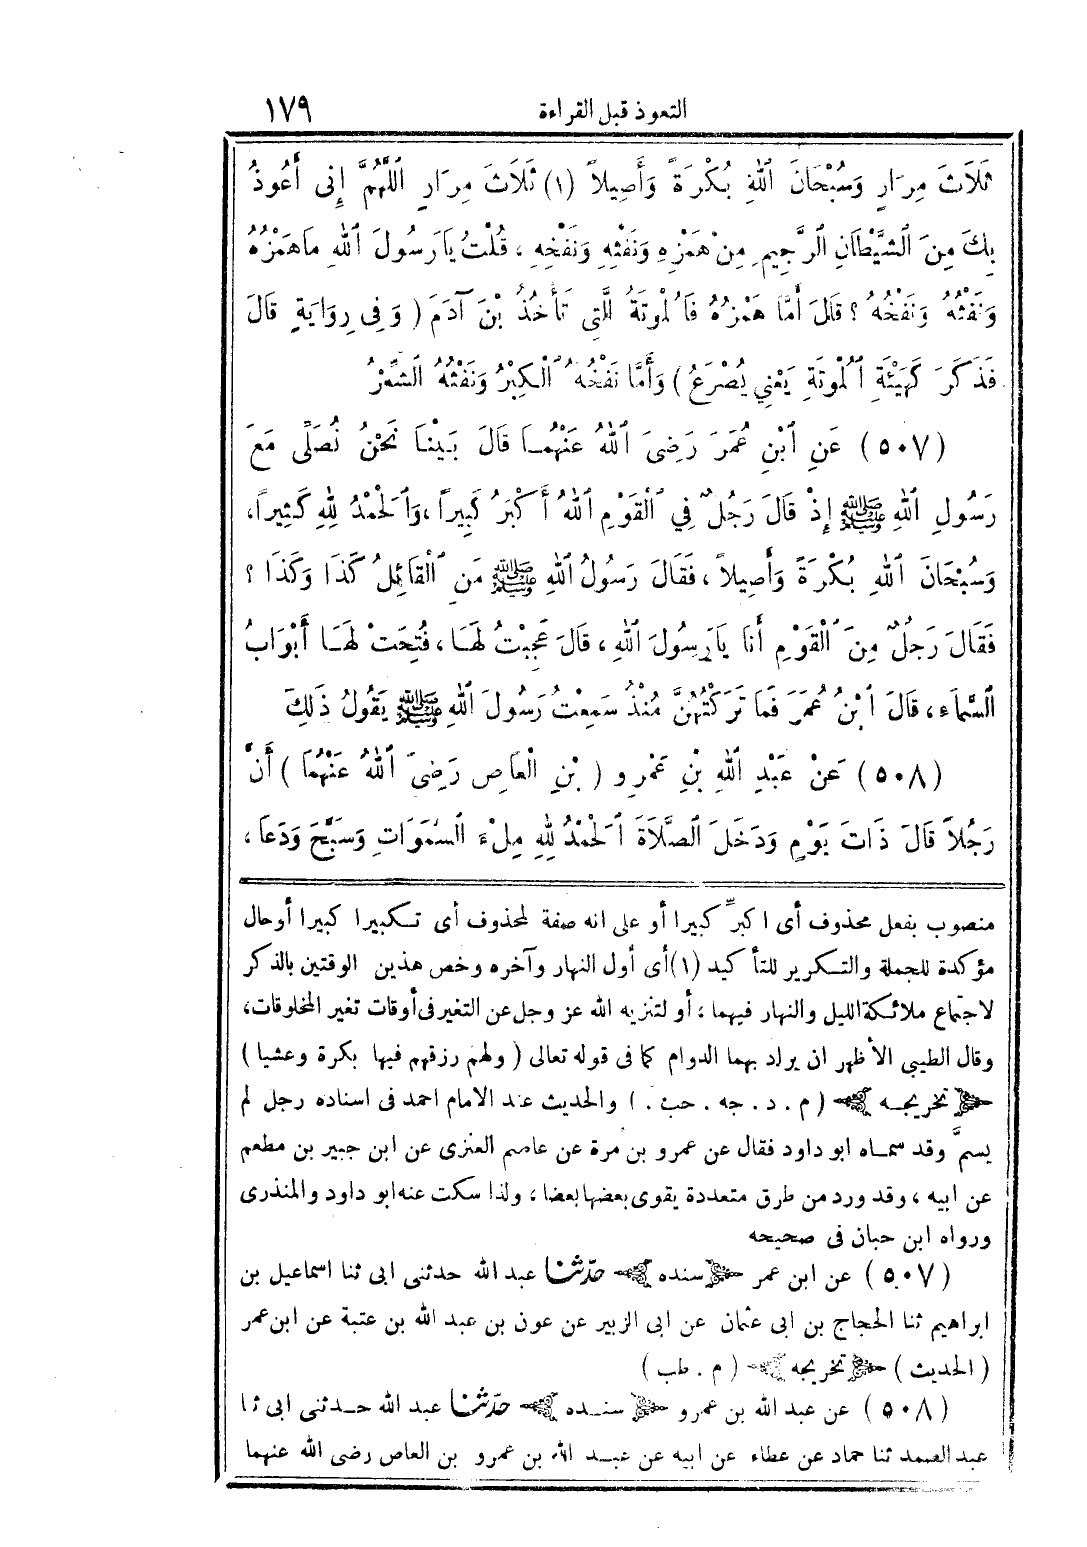 التعوذ قبل القراءة ١٧٩
ثَلَاثَ مِرَارٍ وَسُبْحَانَ اللهِ بُكْرَةً وَأَصِيلاً (١) ثَلَاثَ مِرَارٍ اللَّهُمَّ إِنِّى أَعُوذُ
بِكَ مِنَ الشَّيْطَانِ الرَّجِيمِ مِنْ هَمْزِهِ وَنَفْثِهِ وَنَفْخِهِ ، قُلْتُ يَا رَسُولَ اللهِ مَا هَمْزُهُ
وَنَفْثُهُ وَنَفْخُهُ ؟ قَالَ أَمَّا هَمْزُهُ فَالْمُوتَةُ الَّتِي تَأْخُذُ بْنَ آدَمَ ( وَفِى رِوَايَةٍ قَالَ
فَذَكَرَ كَهَيْئَةِ الْمُوتَةِ يَعْنِي يُصْرَعُ ) وَأَمَّا نَفْخُهُ الْكِبْرُ وَنَفْثُهُ الشِّعْرُ
(٥٠٧) عَنِ ابْنِ عُمَرَ رَضِىَ اللهُ عَنْهُمَا قَالَ بَيْنَا نَحْنُ نُصَلِّى مَعَ
رَسُولِ اللهِ ﷺ إِذْ قَالَ رَجُلٌ فِي الْقَوْمِ اللهُ أَكْبَرُ كَبِيراً ، وَالْحَمْدُ لِلهِ كَثِيراً،
وَسُبْحَانَ اللهِ بُكْرَةً وَأَصِيلاً ، فَقَالَ رَسُولُ اللهِ ﷺ مَنِ الْقَائِلُ كَذَا وَكَذَا ؟
فَقَالَ رَجُلٌ مِنَ الْقَوْمِ أَنَا يَا رَسُولَ اللهِ ، قَالَ عَجِبْتُ لَهَا ، فُتِحَتْ لَهَا أَبْوَابُ
السَّمَاءِ ، قَالَ ابْنُ عُمَرَ فَمَا تَرَكْتُهُنَّ مُنْذُ سَمِعْتُ رَسُولَ اللهِ ﷺ يَقُولُ ذَلِكَ
(٥٠٨) عَنْ عَبْدِ اللهِ بْنِ عَمْرٍو ( بْنِ الْعَاصِ رَضِىَ اللهُ عَنْهُمَا ) أَنَّ
رَجُلاً قَالَ ذَاتَ يَوْمٍ وَدَخَلَ الصَّلَاةَ الْحَمْدُ لِلهِ مِلْءَ السَّمَوَاتِ وَسَبَّحَ وَدَعَا ،
منصوب بفعل محذوف أى اكبرّ كبيرا أو على انه صفة لمحذوف أى تكبيرا كبيرا أو حال
مؤكدة للجملة والتكرير للتأكيد (١) أى أول النهار وآخره وخص هذين الوقتين بالذكر
لاجتماع ملائكة الليل والنهار فيهما ؛ أو لتنزيه الله عز وجل عن التغير فى أوقات تغير المخلوقات،
وقال الطيبي الأظهر ان يراد بهما الدوام كما فى قوله تعالى ( ولهم رزقهم فيها بكرة وعشيا )
تخريجه ( م . د . جه . حب . ) والحديث عند الامام احمد فى اسناده رجل لم
يسمَّ وقد سماه ابو داود فقال عن عمرو بن مرة عن عاصم العنزى عن ابن جبير بن مطعم
عن ابيه ، وقد ورد من طرق متعددة يقوى بعضها بعضا ؛ ولذا سكت عنه ابو داود والمنذرى
ورواه ابن حبان فى صحيحه
(٥٠٧) عن ابن عمر سنده حدّثنا عبد الله حدثنى ابى ثنا اسماعيل بن
ابراهيم ثنا الحجاج بن ابى عثمان عن ابى الزبير عن عون بن عبد الله بن عتبة عن ابن عمر
( الحديث ) تخريجه ( م . طب )
(٥٠٨) عن عبد الله بن عمرو سنده حدّثنا عبد الله حدثنى ابى ثنا
عبد الصمد ثنا حماد عن عطاء عن ابيه عن عبد الله بن عمرو بن العاص رضى الله عنهما